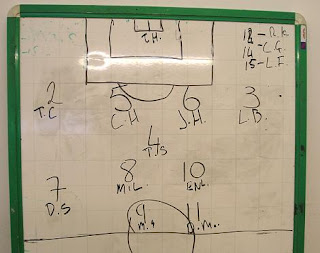 J.H.
12 - R.K
14 - C.G.
15 - L.F.
2
T.C
5
C.H
6
J.H.
3
L.B.
4
T.S
8
M.L.
10
7
D.S
9
11
D.M.